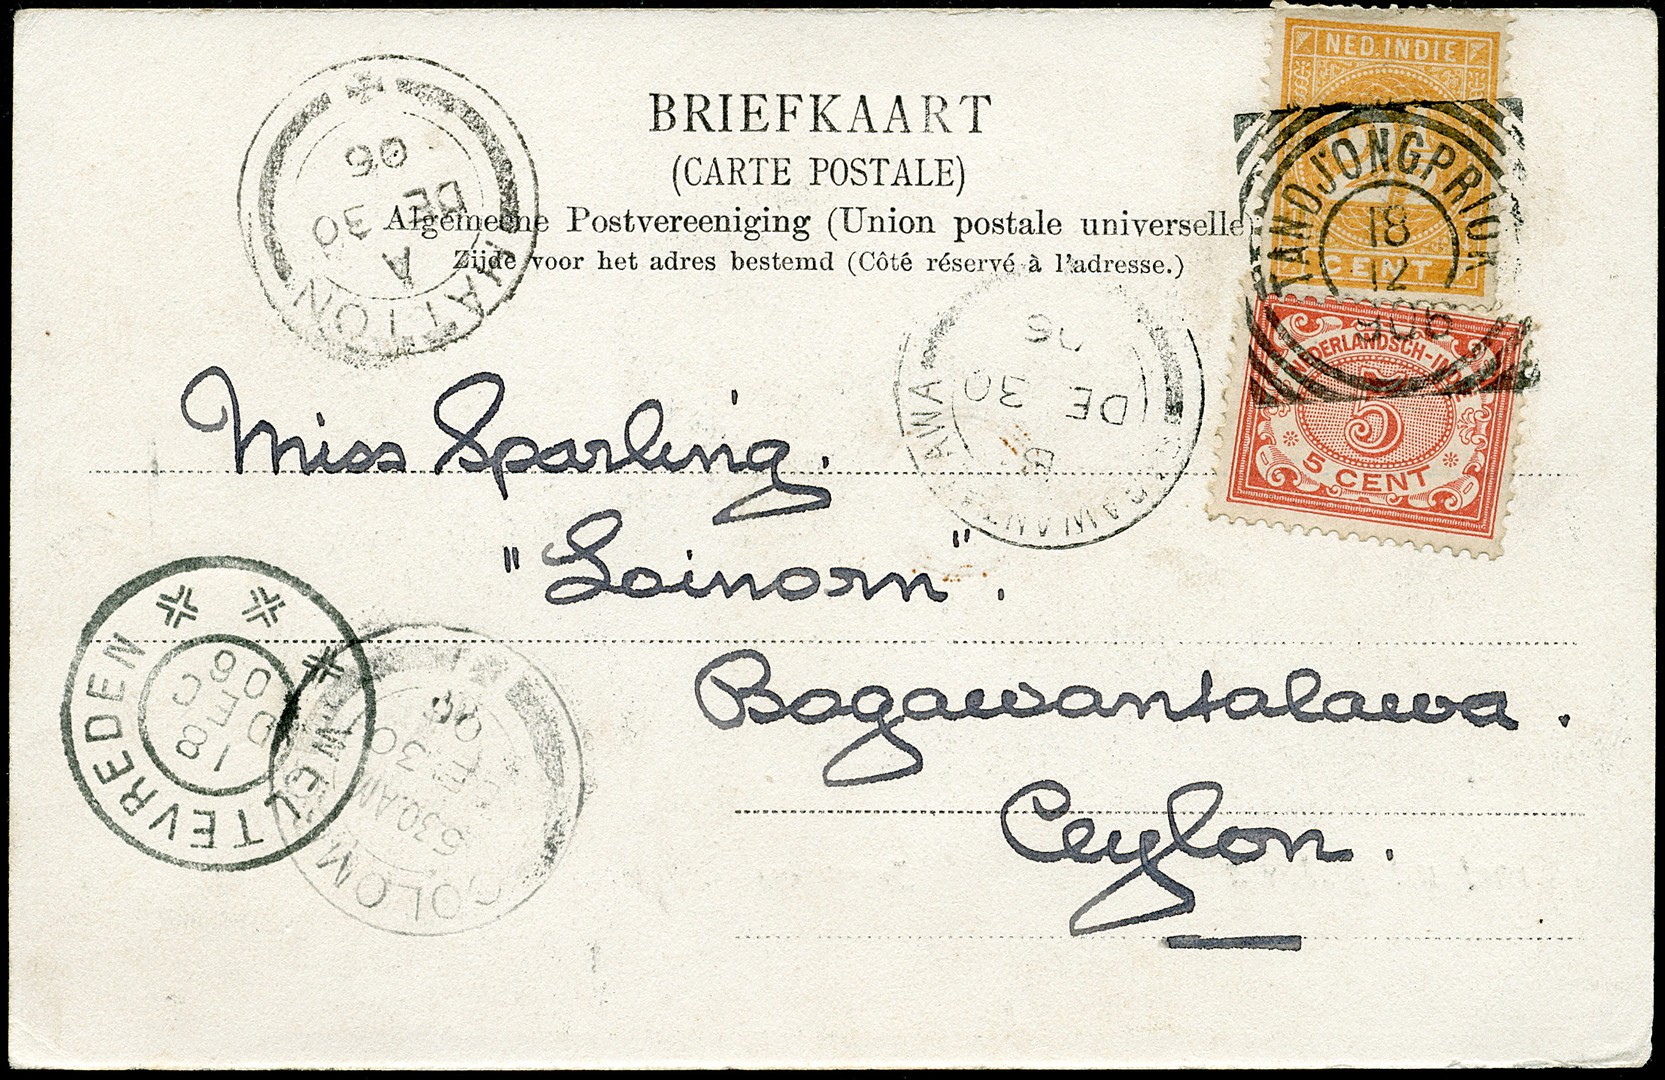 BRIEFKAART
(CARTE POSTALE)
Algemeene Postvereeniging (Union postale universelle)
Zijde voor het adres bestemd (Côté réservé à l'adresse.)
NED. INDIE
CENT
TANDJONGPRIOK
18
12
906
NEDERLANDSCH-INDIË
5
5 CENT
HATTON
A
DE 30
06
BAGAWANTALAWA
B
DE 30
06
Miss Sparling.
"Loinorn".
Bagawantalawa.
Ceylon.
WELTEVREDEN
18
DEC
06
COLOMBO
5.30.AM
DE 30
06